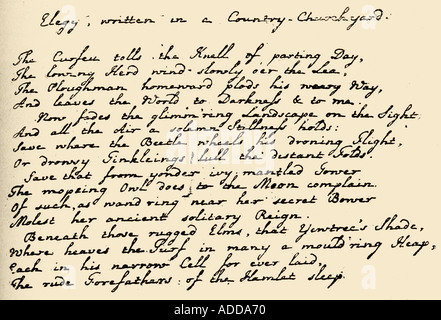 Elegy, written in a Country-Churchyard.
The Curfeu tolls the Knell of parting Day,
The lowing Herd wind slowly o'er the Lea,
The Ploughman homeward plods his weary Way,
And leaves the World to Darkness & to me.
Now fades the glimm'ring Landscape on the Sight.
And all the Air a solemn Stillness holds:
Save where the Beetle wheels his droning Flight,
Or drowsy Tinkleings lull the distant Folds.
Save that from yonder ivy-mantled Tower
The mopeing Owl does to the Moon complain
Of such, as wand'ring near her secret Bower
Molest her ancient solitary Reign.
Beneath those rugged Elms, that Yewtree's Shade,
Where heaves the Turf in many a mould'ring Heap,
Each in his narrow Cell for ever laid,
The rude Forefathers of the Hamlet sleep.
alamy
ADDA70
www.alamy.com